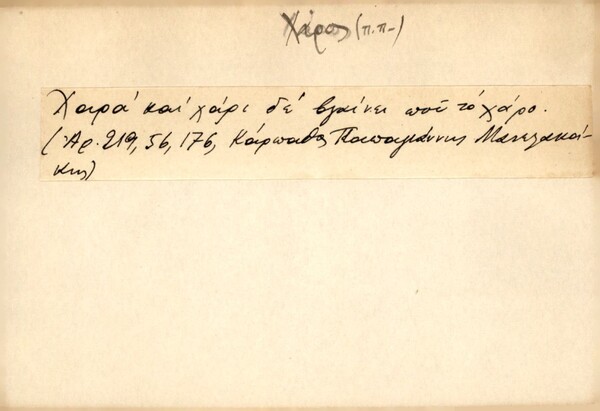 Χάρος (π.π-)
Χαρά καί χάρι δέ βγαίνει ποῦ τό χάρο.
(Ἀρ. 219, 56, 176, Κάρπαθος Παπαγιάννης Μανωλακά-
κης)